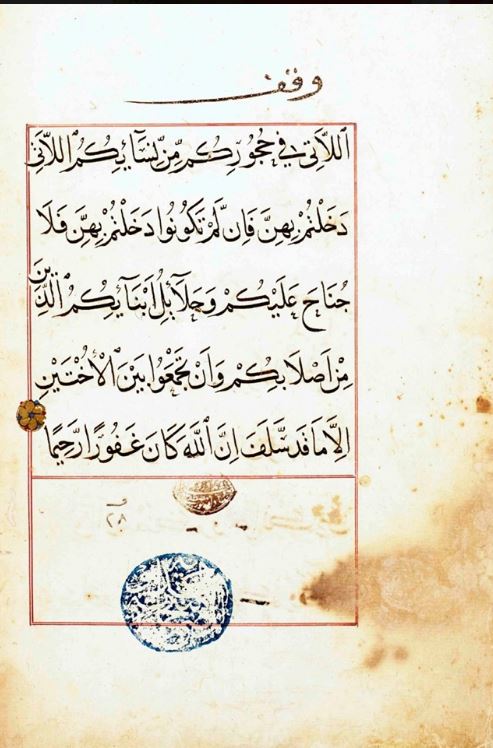 وقف
ٱللَّاتِى فِى حُجُورِكُم مِّن نِّسَآيِكُمُ ٱللَّاتِى
دَخَلْتُمْ بِهِنَّ فَإِن لَّمْ تَكُونُوا دَخَلْتُمْ بِهِنَّ فَلَا
جُنَاحَ عَلَيْكُمْ وَحَلَآيِلُ اَبْنَآيِكُمُ ٱلَّذِينَ
مِنْ اَصْلَابِكُمْ وَاَنْ تَجْمَعُوا بَيْنَ ٱلْأُخْتَيْنِ
اِلَّا مَا قَد سَّلَفَ اِنَّ ٱللَّهَ كَانَ غَفُورًا رَّحِيمًا